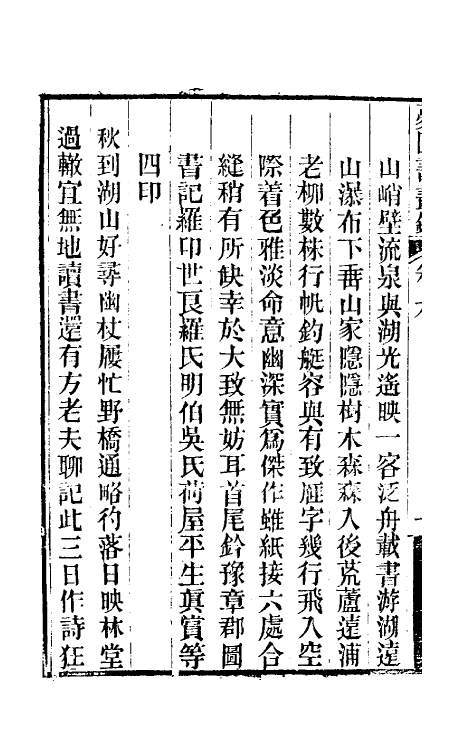 山峭壁流泉與湖光遙映一客泛舟載書游湖遠
山瀑布下垂山家隱隱樹木森森入後荒蘆遠浦
老柳數株行帆釣艇容與有致雁字幾行飛入空
際着色雅淡命意幽深實爲傑作雖紙接六處合
縫稍有所缺幸於大致無妨耳首尾鈐豫章郡圖
書記羅印世良羅氏明伯吳氏荷屋平生真賞等
四印
秋到湖山好尋幽杖屨忙野橋通略彴落日映林堂
過轍宜無地讀書還有方老夫聊記此三日作詩狂